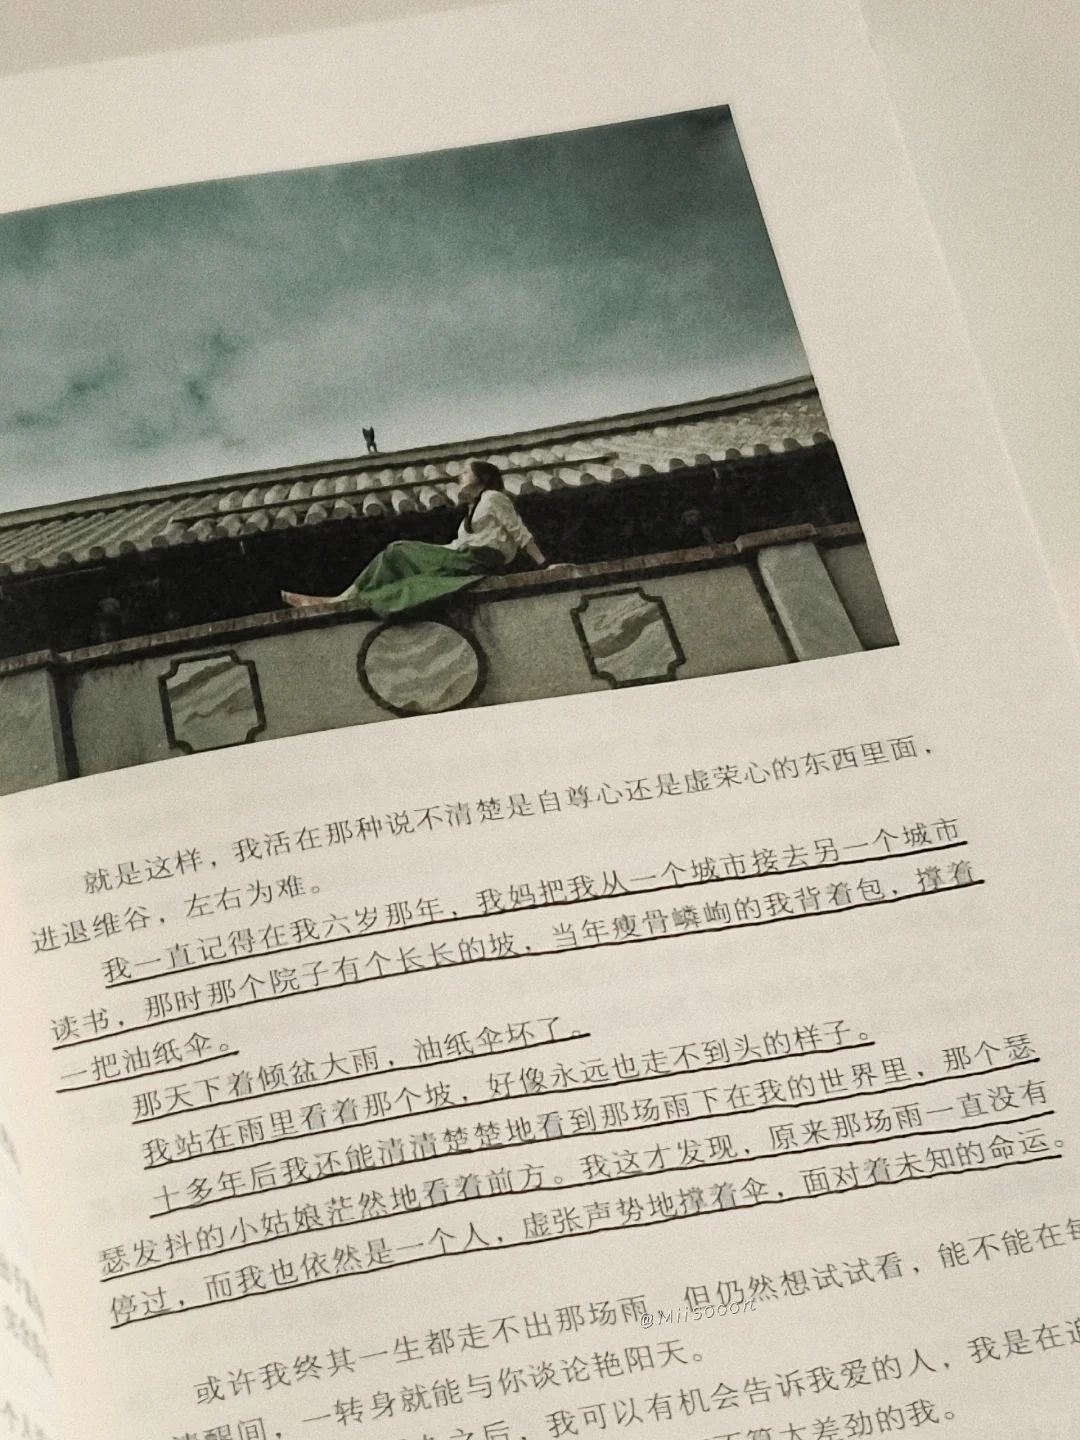 就是这样，我活在那种说不清楚是自尊心还是虚荣心的东西里面，
进退维谷，左右为难。
我一直记得在我六岁那年，我妈把我从一个城市接去另一个城市
读书，那时那个院子有个长长的坡，当年瘦骨嶙峋的我背着包，撑着
一把油纸伞。
那天下着倾盆大雨，油纸伞坏了。
我站在雨里看着那个坡，好像永远也走不到头的样子。
十多年后我还能清清楚楚地看到那场雨下在我的世界里，那个瑟
瑟发抖的小姑娘茫然地看着前方。我这才发现，原来那场雨一直没有
停过，而我也依然是一个人，虚张声势地撑着伞，面对着未知的命运。
或许我终其一生都走不出那场雨，但仍然想试试看，能不能在每
清醒间，一转身就能与你谈论艳阳天。
之后，我可以有机会告诉我爱的人，我是在追
不算太差劲的我。
@Miisooort